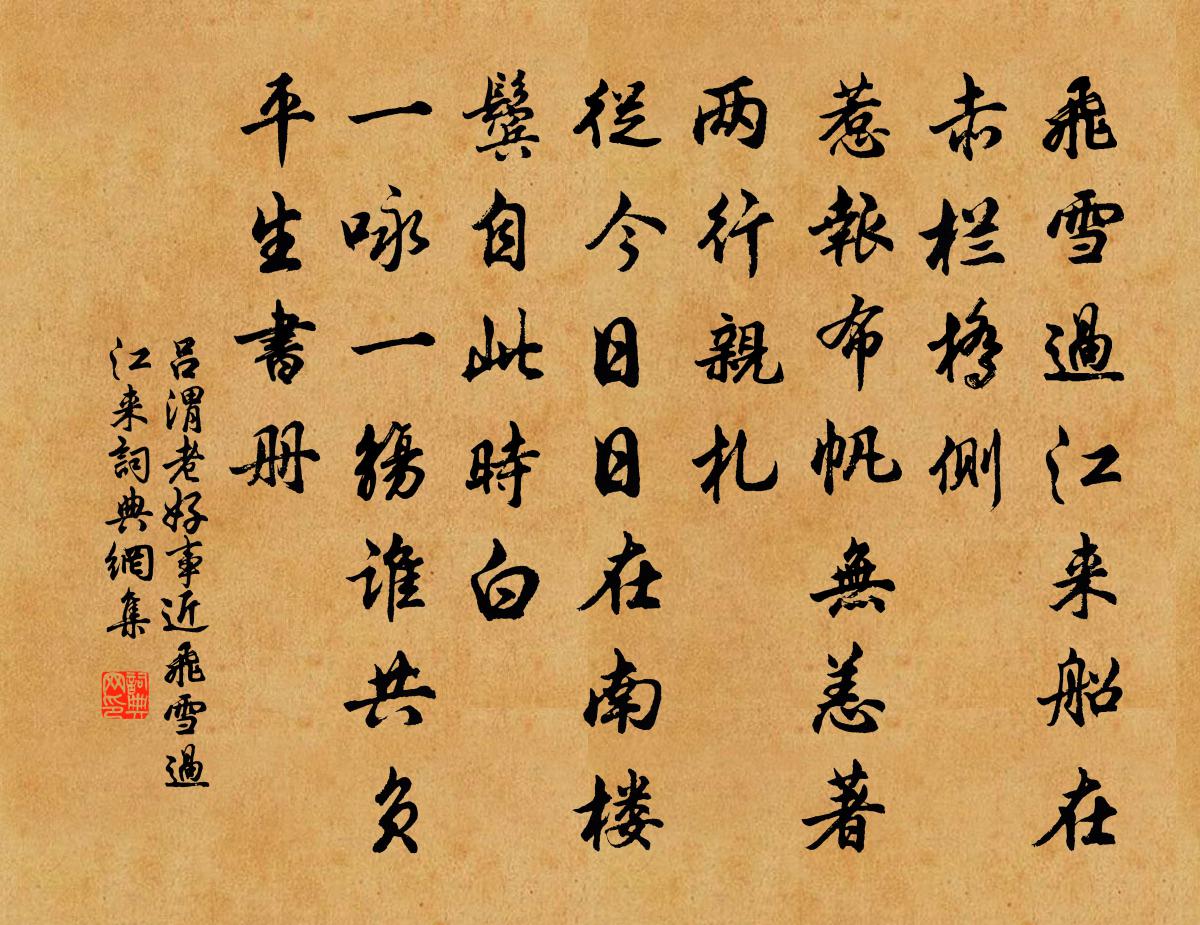 飛雪過江来船在
赤栏橋側
惹報布帆無恙著
两行親札
從今日日在南楼
鬓自此時白
一咏一觴谁共負
平生書册
吕渭老好事近飛雪過
江来詞典網集
詞典网印